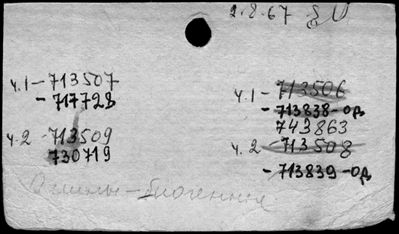 2.8.67
ч.1-713507
-717728
ч.2-713509
730719
ч.1-713506
-713838-од
743863
ч.2-713508
-713839-од